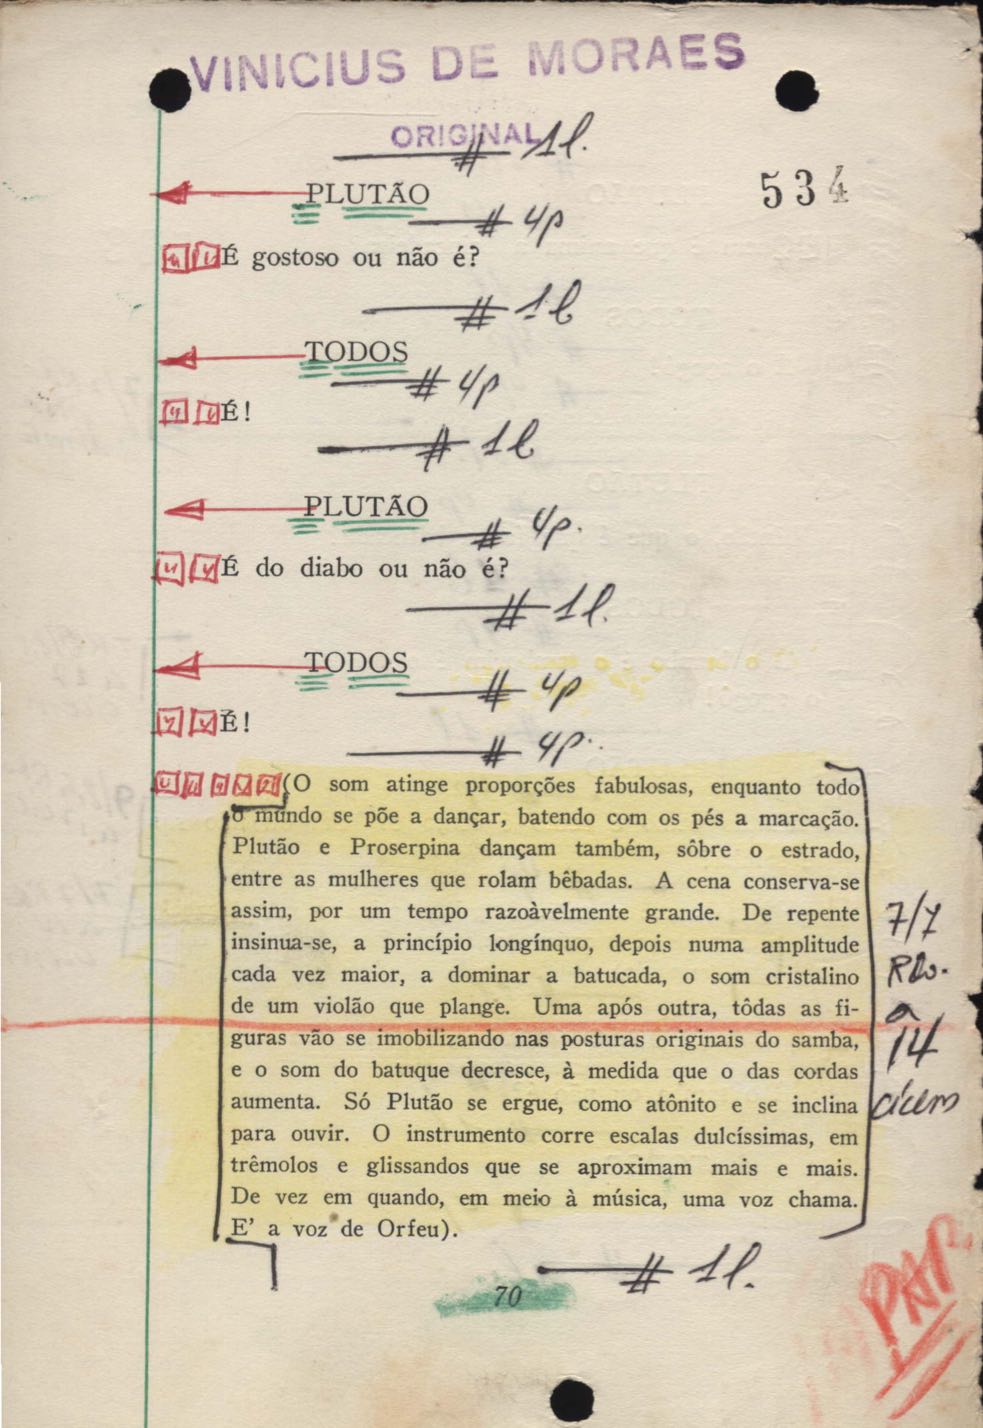 VINICIUS DE MORAES
ORIGINAL
# 1l.
534
PLUTÃO
# 4p
É gostoso ou não é?
# 1l
TODOS
# 4p
É!
# 1l
PLUTÃO
# 4p.
É do diabo ou não é?
# 1l.
TODOS
# 4p
É!
# 4p.
(O som atinge proporções fabulosas, enquanto todo
o mundo se põe a dançar, batendo com os pés a marcação.
Plutão e Proserpina dançam também, sôbre o estrado,
entre as mulheres que rolam bêbadas. A cena conserva-se
assim, por um tempo razoàvelmente grande. De repente
insinua-se, a princípio longínquo, depois numa amplitude
cada vez maior, a dominar a batucada, o som cristalino
de um violão que plange. Uma após outra, tôdas as fi-
guras vão se imobilizando nas posturas originais do samba,
e o som do batuque decresce, à medida que o das cordas
aumenta. Só Plutão se ergue, como atônito e se inclina
para ouvir. O instrumento corre escalas dulcíssimas, em
trêmolos e glissandos que se aproximam mais e mais.
De vez em quando, em meio à música, uma voz chama.
E' a voz de Orfeu).
7/7
a
14
cícero
# 1l.
70